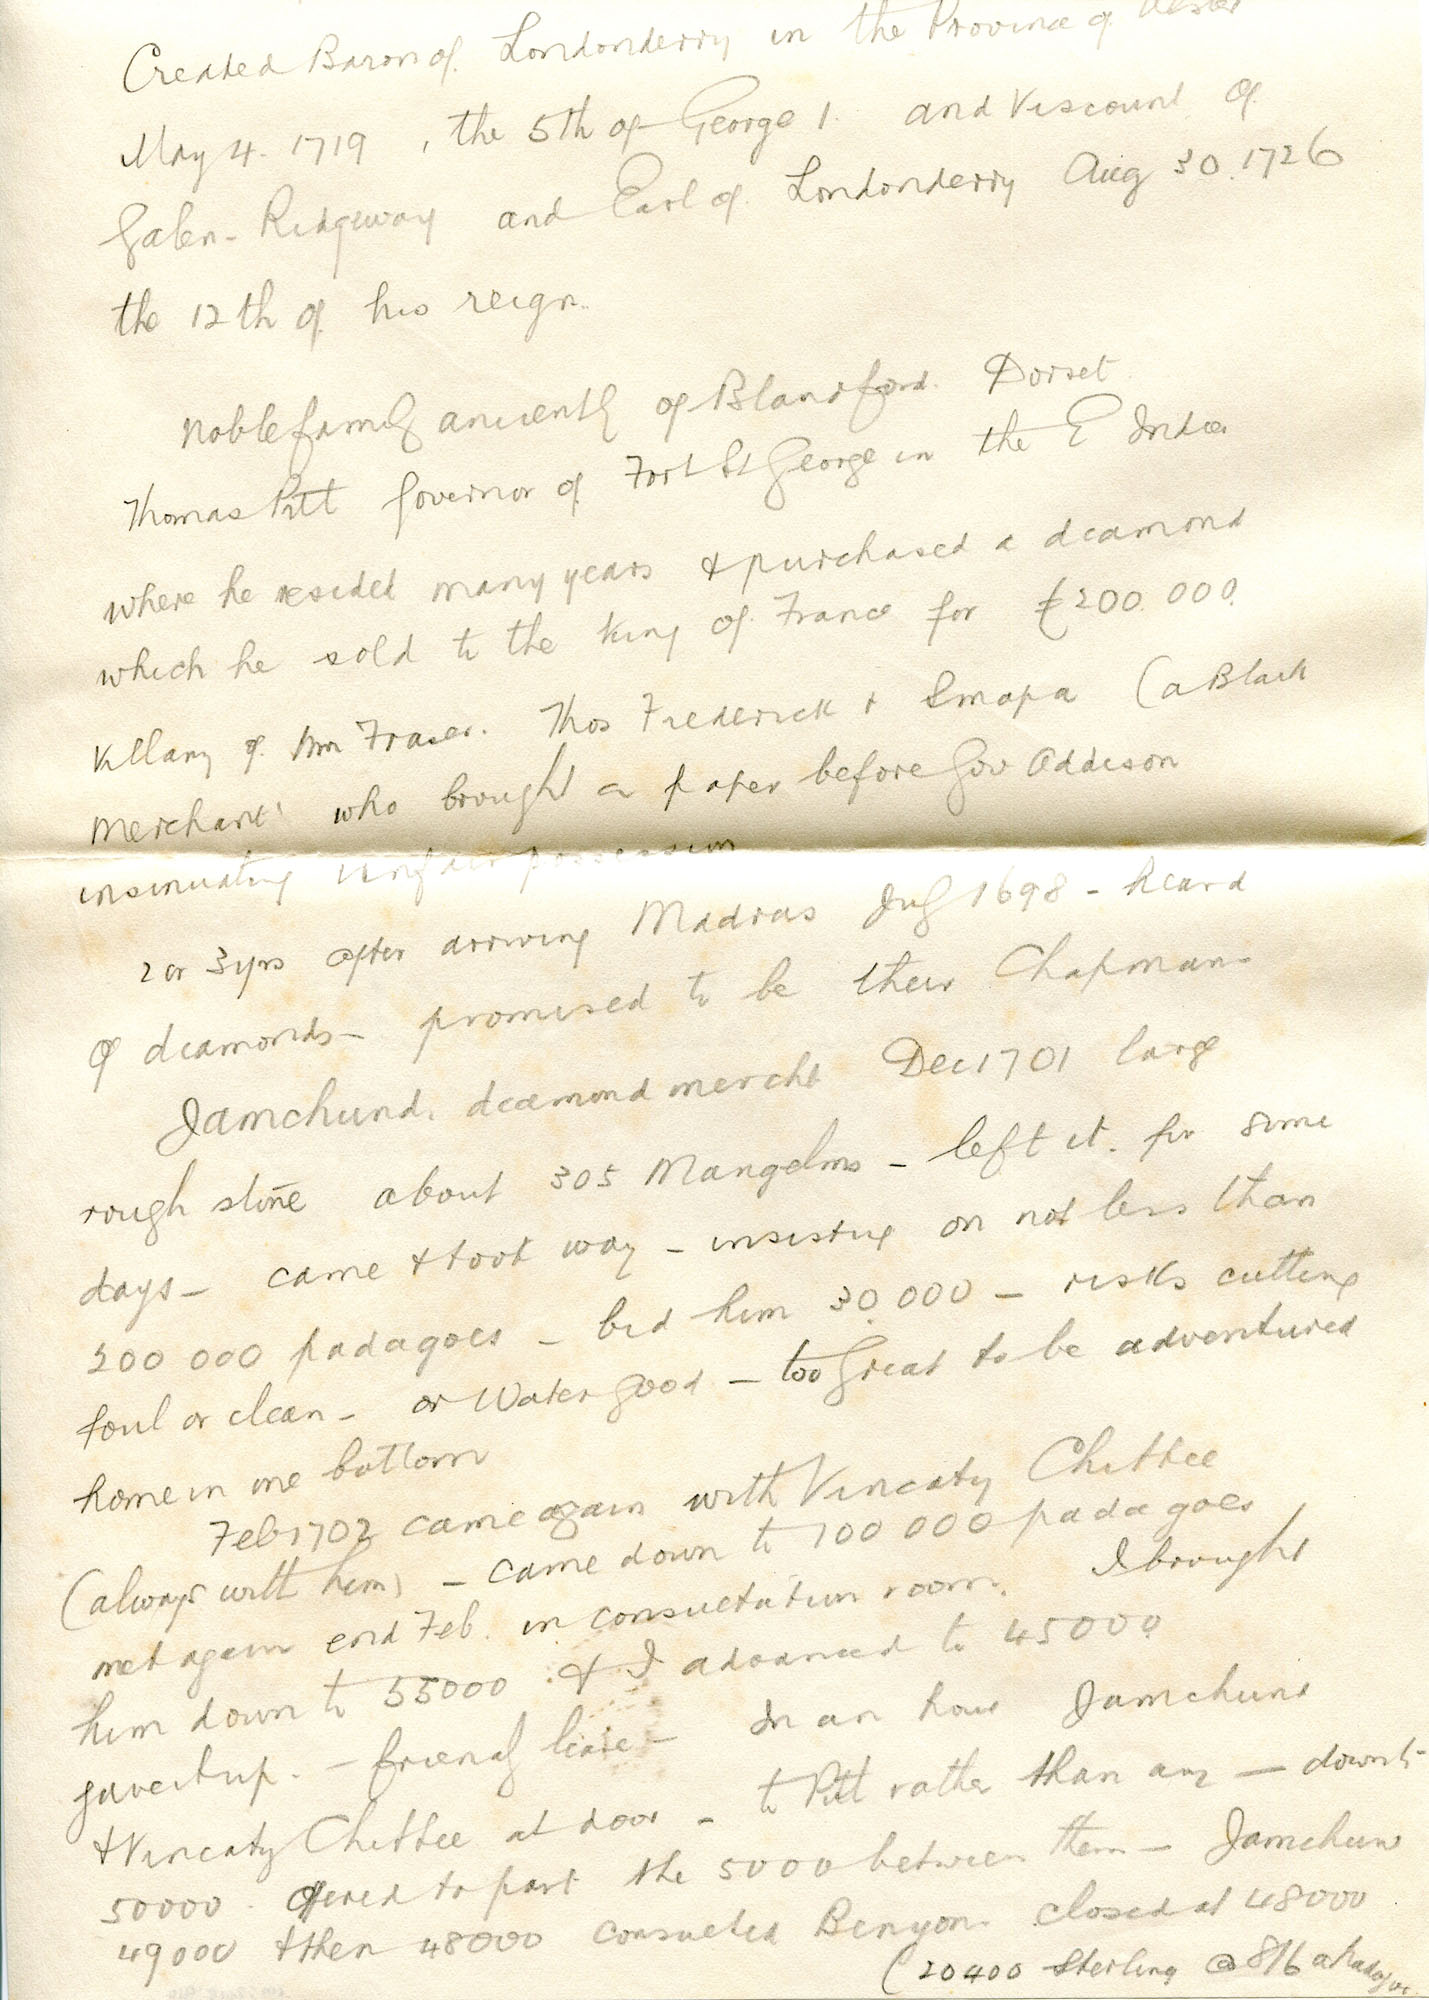 Created Baron of Londonderry in the Province of Ulster
May 4. 1719, the 5th of George 1. and Viscount of
Galen-Ridgeway and Earl of Londonderry Aug 30. 1726
the 12th of his reign.
Noble family anciently of Blandford. Dorset
Thomas Pitt Governor of Fort St George in the E India
where he resided many years & purchased a diamond
which he sold to the King of France for £200 000.
Villany of Mr Fraser. Thos Frederick & Smapa (a Black
Merchant' who brought a paper before Gov Addison
insinuating unfair possession
2 or 3 yrs after arriving Madras July 1698 - heard
of diamonds - promised to be their Chapman-
Jamchund. diamond mercht Dec 1701 large
rough stone about 305 Mangelins - left it. for some
days - came & took way - insisting on not less than
200 000 padagoes - bid him 30.000 - risks cutting
foul or clean - or Water good - too Great to be adventured
home in one bottom
Feb 1702 came again with Vincaty Chittee
(always with him) - came down to 100 000 padagoes
met again end Feb. in consultation room. I brought
him down to 55000 & I advanced to 45000
gave it up. - friendly leave - In an hour Jamchund
& Vincaty Chittee at door - to Pitt rather than any - down to
50000. offered to part the 5000 between them - Jamchund
49000 & then 48000 consulted Benyon. closed at 48000
(20400 Sterling @ 8/6 a Padagoe.